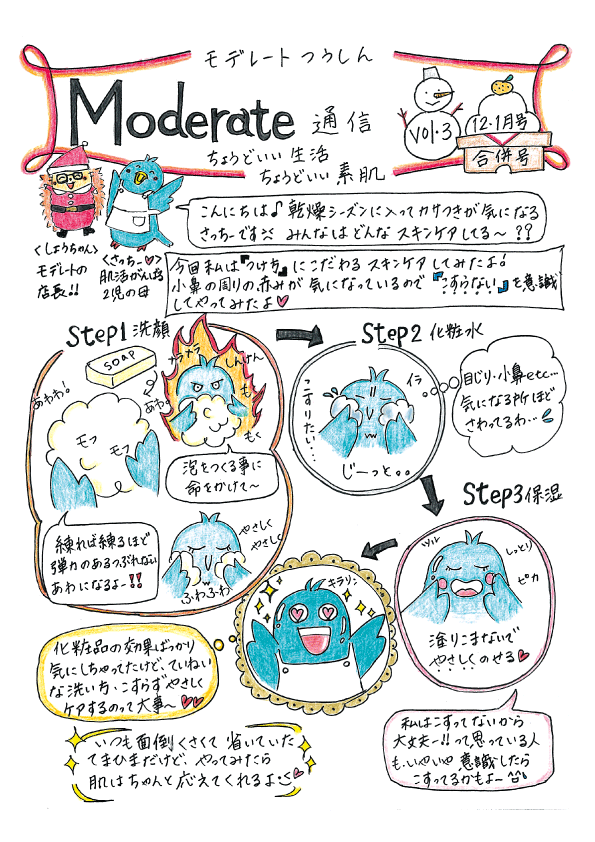 モデレート つうしん
Moderate 通信
ちょうどいい 生活
ちょうどいい 素肌
Vol.3
12・1月号
合併号
<しょうちゃん>
モデレートの
店長!!
<さっちー♡>
肌活がんばる
2児の母
こんにちは♪ 乾燥シーズンに入ってカサつきが気になる
さっちーです みんなはどんな スキンケアしてる〜??
今回私は『つけ方』にこだわる スキンケア してみたよ!
小鼻の周りの赤みが 気になっているので『こすらない』を意識
してやってみたよ♥
Step1 洗顔
SOAP
あわわ!
あわ
モフ
モフ
メラメラ
しんけん
もく
もく
泡をつくる事に
命をかけて〜
練れば練るほど
弾力のあるつぶれない
あわになるよー!!
やさしく
やさしく
ふわふわ
Step2 化粧水
こすりたい...
イラ
じーっと。。
目じり・小鼻etc...
気になる所ほど
さわってるわ...
Step3 保湿
ツル
しっとり
ピカ
塗りこまないで
やさしく のせる♥
キラリン
化粧品の効果ばっかり
気にしちゃってたけど、ていねい
な洗い方・こすらずやさしく
ケアするのって大事〜♥♥
私はこすってないから
大丈夫ー!!って思っている人
も、いやいや 意識したら
こすってるかもよー^^
いつも面倒くさくて 省いていた
てまひまだけど、やってみたら
肌はちゃんと 応えてくれるよ♥